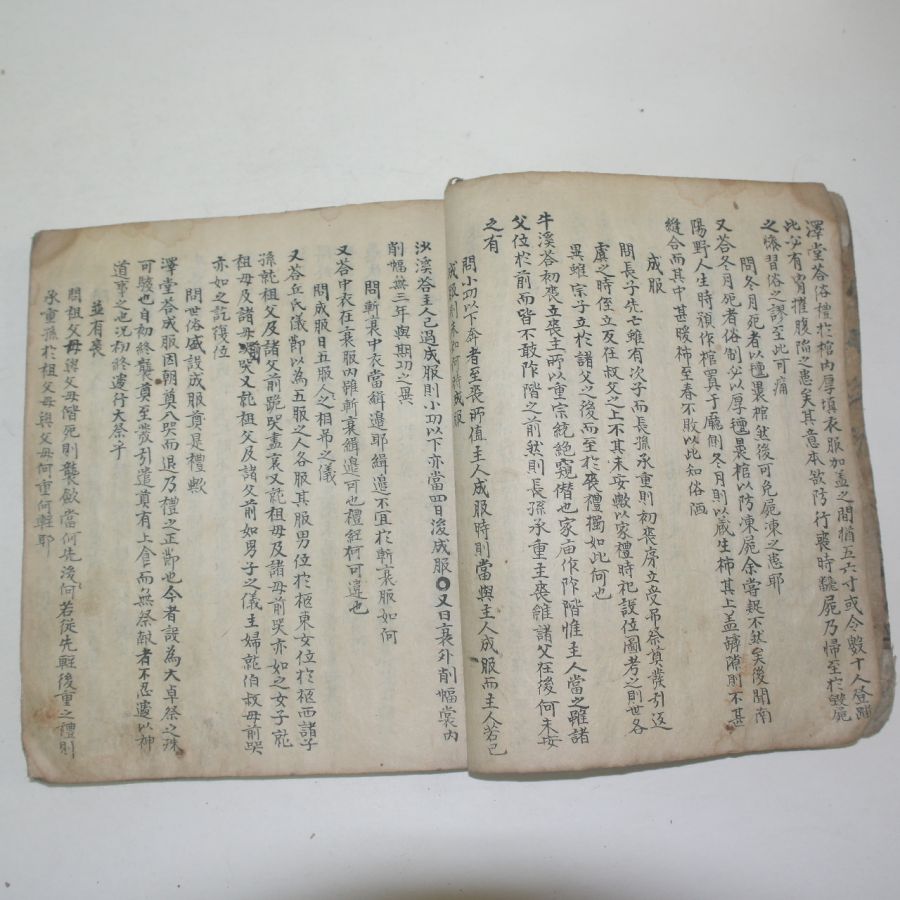 澤堂答俗禮於棺內厚填衣服加盖之間猶五六寸或令數十人登蹋
此必有胷摧腹陷之患矣其意本欲防行喪時騷屍乃歸至於毀屍
之慘習俗之謬至此可痛
問冬月死者以氊裹棺然後可免屍凍之患耶
又答冬月死者俗制必以厚氊裹棺以防凍屍余嘗疑不然矣後聞南
陽野人生時預作棺置于廳側冬月則以藏生柿其上盖罅隙則不甚
縫合而其中甚暖柿至春不敗以此知俗
成服
問長子先亡雖有次子而長孫承重則初喪房立受吊祭奠發引返
虞之時侄立反在叔父之上不其未安歟以家禮時祀設位圖考之則世各
異雖宗子立於諸父之後而至於喪禮獨如此何也
牛溪答初喪立喪主所以重宗統絶窺僭也家庙作阼階惟主人當之雖諸
父位於前而皆不敢阼階之前然則長孫承重主喪雖諸父在後何未安
之有
問小功以下奔者至喪所值主人成服時則當與主人成服而主人若已
成服則
沙溪答主人已過成服則小功以下亦當四日後成服○又曰衰外削幅裳內
削幅無三年與期功之異
問斬衰中衣當緝邉耶緝邉不宜於斬衰服如何
又答中衣在衰服內雖斬衰緝邉可也禮經何可違也
問成服日五服人之相吊之儀
又答丘氏儀節以為五服之人各服其服男位於柩東女位於柩西諸子
孫就祖父及諸父前跪哭盡哀又就祖母及諸母前哭亦如之女子就
祖母及諸母前哭又就祖父及諸父前如男子之儀主婦就伯叔母前哭
亦如之訖復位
問世俗盛設成服奠是禮歟
澤堂答成服因朝奠入哭而退乃禮之正節也今者設為大卓祭之殊
可駭也自初終襲奠至發引遣奠有上食而無祭獻者不忍遽以神
道事之也况初終遽行大祭乎
並有喪
問祖父母與父母偕死則襲斂當何先後何若從先輕後重之禮則
承重孫於祖父母與父母何重何輕耶